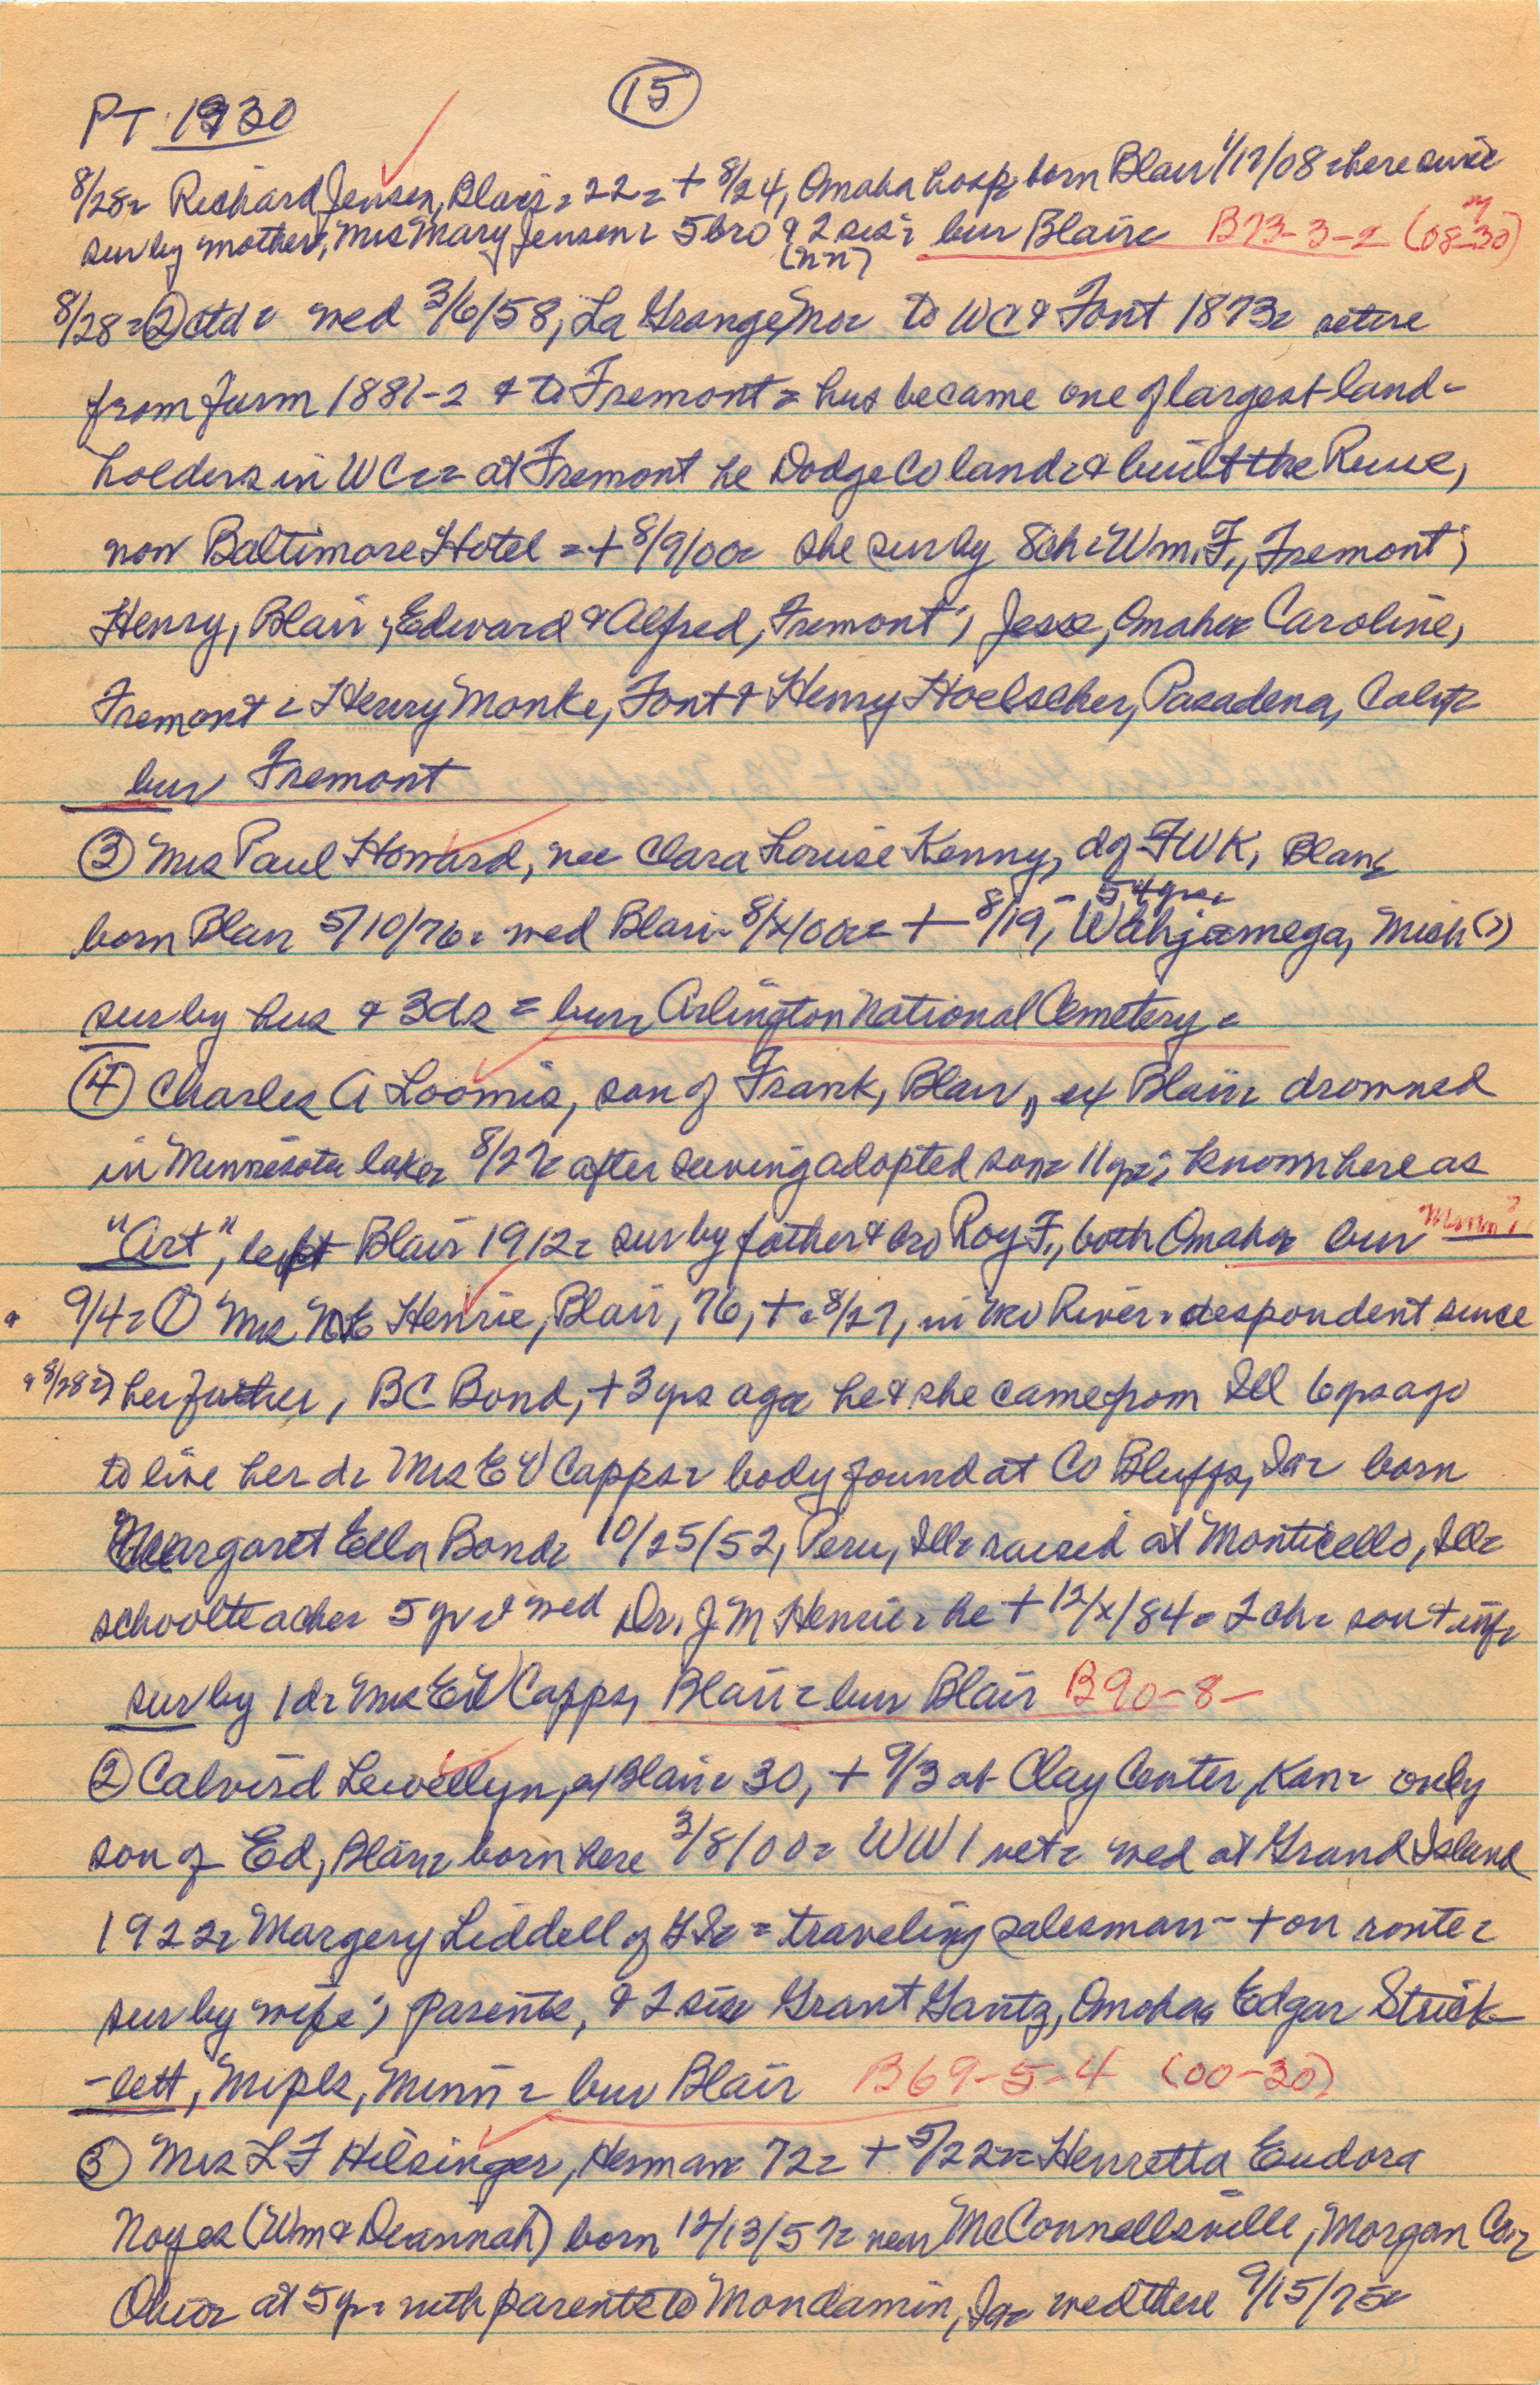 15
PT 1930
8/28= Richard Jensen, Blair= 22= + 8/24, Omaha hosp= born Blair 1/17/08= here since
sur by mother, Mrs Mary Jensen= 5 bro & 2 sis= bur Blair= B73-3-2 (08-30)
(nn)
8/28= 2 ctd= wed 3/6/58, La Grange, Mo= to WC & Font 1873= retire
from farm 1881-2 & to Fremont= hus became one of largest land-
holders in WC== at Fremont he Dodge Co land= & built the
now Baltimore Hotel = + 8/9/00= she sur by 8 ch= Wm. F., Fremont;
Henry, Blair; Edward & Alfred, Fremont; Jesse, Omaha= Caroline,
Fremont= Henry Monke, Font & Henry Hoelscher, Pasadena, Calif=
bur Fremont
3 Mrs Paul Howard, nee Clara Louise Kenny, d of FWK, Blair,
- 54 yrs=
born Blair 5/10/76= wed Blair= 8/x/00= + 8/19, Wahjamega, Mich (?)
sur by hus & 3 ds = bur Arlington National Cemetery=
4 Charles A Loomis, son of Frank, Blair, ex Blair= drowned
in Minnesota lake= 8/27= after saving adopted son= 11 yrs; known here as
"Art", left Blair 1912= sur by father & bro Roy F., both Omaha= bur Minn?
9/4= 1 Mrs Henrie, Blair, 76, += 8/27, in Mo River= despondent since
& 8/28= 2) her father, BC Bond, + 3 yrs ago= he & she came from Ill 6 yrs ago
to live her d= Mrs EV Capps= body found at Co Bluffs, Ia= born
Margaret Ella Bond= 10/25/52, Peru, Ill= raised at Monticello, Ill=
schoolteacher 5 yr= & wed Dr. J M Henrie= he + 12/x/84= 2 ch= son + inf=
sur by 1 d= Mrs EV Capps, Blair= bur Blair B90-8-
2 Calvird Lewellyn, ex Blair= 30, + 9/3 at Clay Center, Kan= only
son of Ed, Blair= born here 3/8/00= WW1 vet= wed at Grand Island
1922= Margery Liddell of GI= = traveling salesman- + on route=
sur by wife; parents, & 2 sis= Grant Gantz, Omaha= Edgar Strick-
-lett, Mpls, Minn= bur Blair B69-5-4 (00-30)
3 Mrs L F Hilsinger, Herman= 72= + 5/22= Henretta Eudora
Noyes (Wm & Deannah) born 12/13/57= near McConnellsville, Morgan Co=
Ohio= at 5 yr= with parents to Mondamin, Ia= wed there 9/15/75=